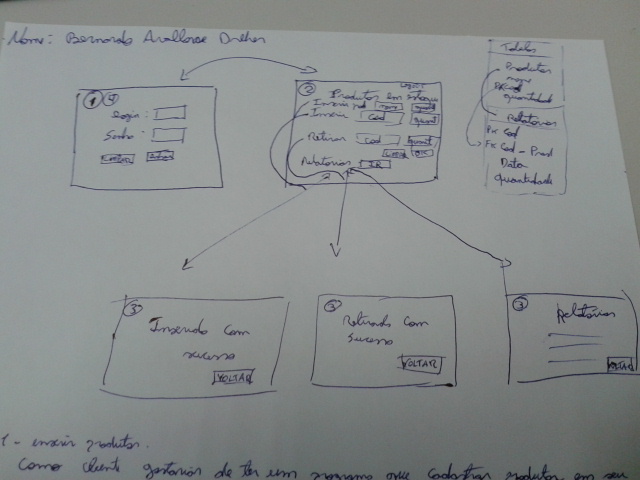 Nome: Bernardo
1 4
Login:
Senha:
2
Produtos em
Inserir
Inserir Cod quant
Retirar Cod quant
OK
Relatórios IR
Tabelas
Produtos
nome
quantidade
Relatórios
PK Cod
FK Cod - Prod
Data
quantidade
3
Inserido com
sucesso
VOLTAR
3
Retirado com
sucesso
VOLTAR
3
Relatórios
VOLTAR
1 - inserir produtos.
Como cliente gostaria de ter um programa que cadastrar produtos em seu